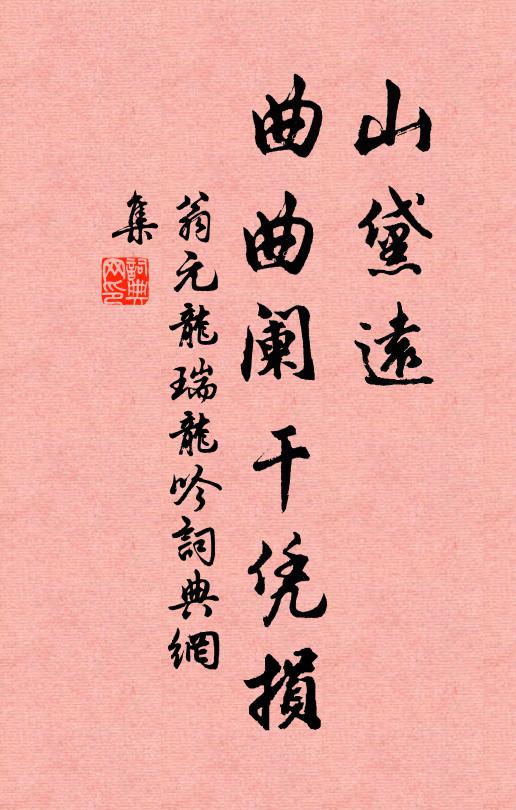 山黛遠
曲曲阑干凭損
翁元龍瑞龍吟詞典網
集
詞典網印